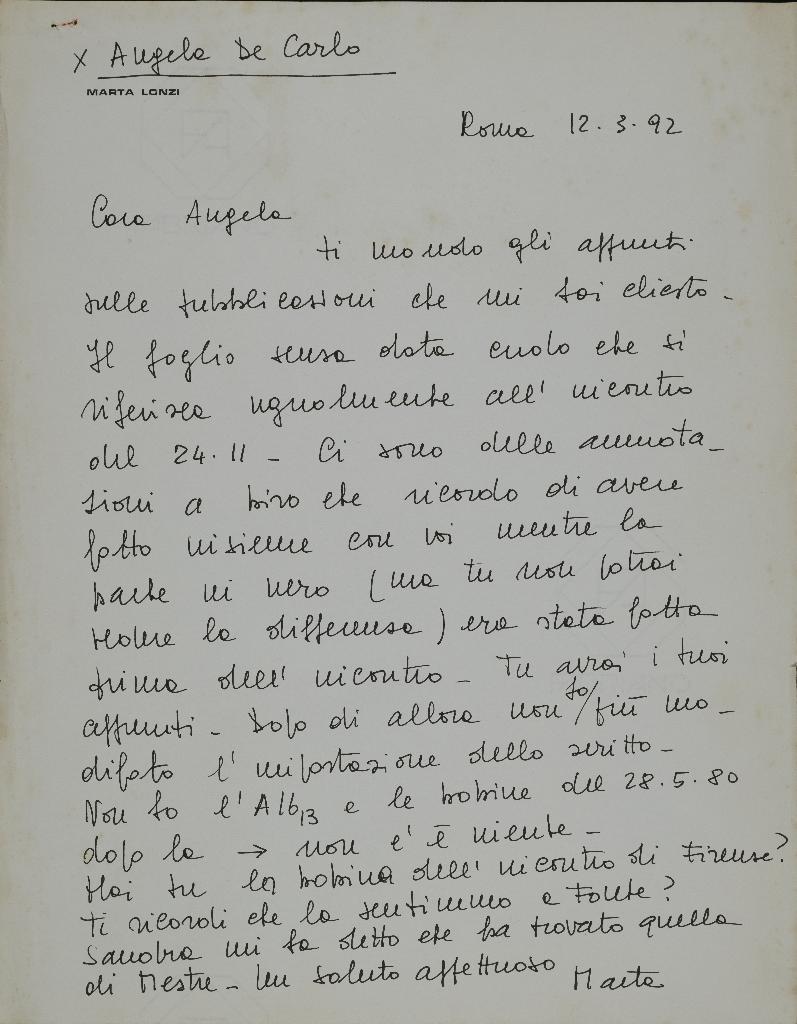 x Angela De Carlo
MARTA LONZI
Roma 12.3.92
Cara Angela
ti mando gli appunti
sulle pubblicazioni che mi hai chiesto -
Il foglio senza data credo che si
riferisca ugualmente all'incontro
del 24.11 - Ci sono delle annota-
zioni a biro che ricordo di avere
fatto insieme con voi mentre la
parte in nero (ma tu non potrai
vedere la differenza) era stata fatta
prima dell'incontro - Tu avrai i tuoi
appunti - Dopo di allora non ho/più mo-
dificato l'impostazione dello scritto -
Non ho l'A16,13 e le bobine del 28.5.80
dopo la → non c'è niente -
Hai tu la bobina dell'incontro di Firenze?
Ti ricordi che la sentimmo a Fonte?
Sandra mi ha detto che ha trovato quella
di Mestre - Un saluto affettuoso Marta